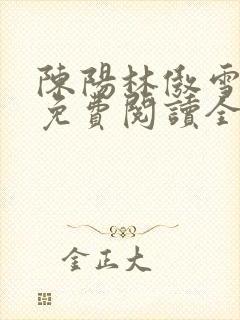 陳陽林傲雪
免費閱讀全
金正大